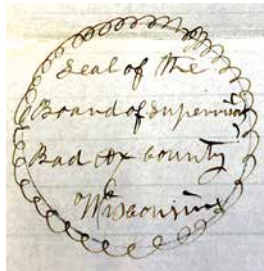 Seal of the
Board of Supervisors
Bad Ax County
Wisconsin